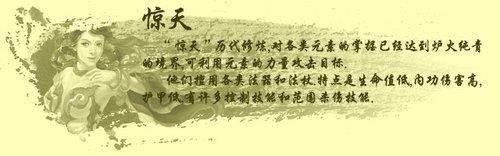 惊天
“惊天”历代修炼,对各类元素的掌握已经达到炉火纯青
的境界,可利用元素的力量攻击目标.
他们擅用各类法器和法杖,特点是生命值低,内功伤害高,
护甲低,有许多控制技能和范围杀伤技能.